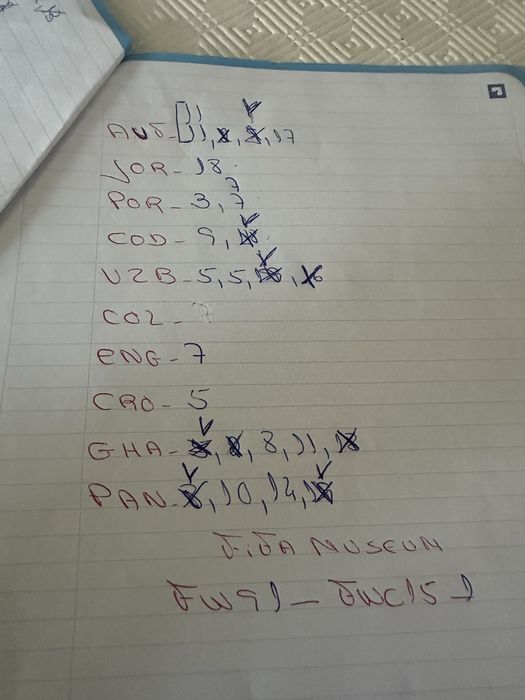 AUT - 1, 1, 17
JOR - 18
POR - 3, 7, 7
COD - 9,
UZB - 5, 5,
COL -
ENG - 7
CRO - 5
GHA - 8, 11, 18
PAN - 10, 12,
FIFA MUSEUM
FW91 - FWC15 1